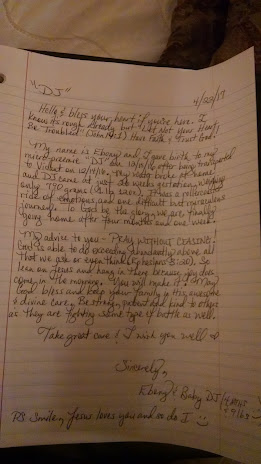 4/22/17
"DJ"
Hello & bless your heart if you're here. I
know its rough already but "Let Not Your Heart
Be Troubled" (John 14:1) Have Faith & Trust God!
My name is Ebony and I gave birth to my
micro-preemie "DJ" on 12/16/16 after being transported
to Vidant on 12/14/16. My water broke at home
and DJ came at just 26 weeks gestation, weighing
only 790 grams (1 lb 12oz). It was a rollercoaster
ride of emotions and one difficult but miraculous
journey. To God be the glory, we are finally
going home after four months and one week.
My advice to you - PRAY WITHOUT CEASING.
God is able to do exceeding abundantly above all
that we ask or even think (Ephesians 3:20). So
lean on Jesus and hang in there because joy does
come in the morning. You will make it & May
God bless and keep your family in His awesome
& divine care. Be strong, patient and kind to others
as they are fighting some type of battle as well.
Take great care! I wish you well
Sincerely,
Ebony & Baby DJ
P.S. Smile, Jesus loves you and so do I